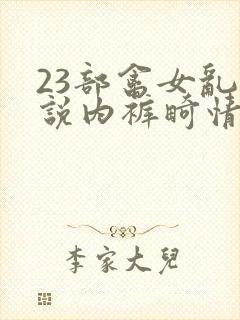 23部畜女乱
説内裤畸情
李家大兒